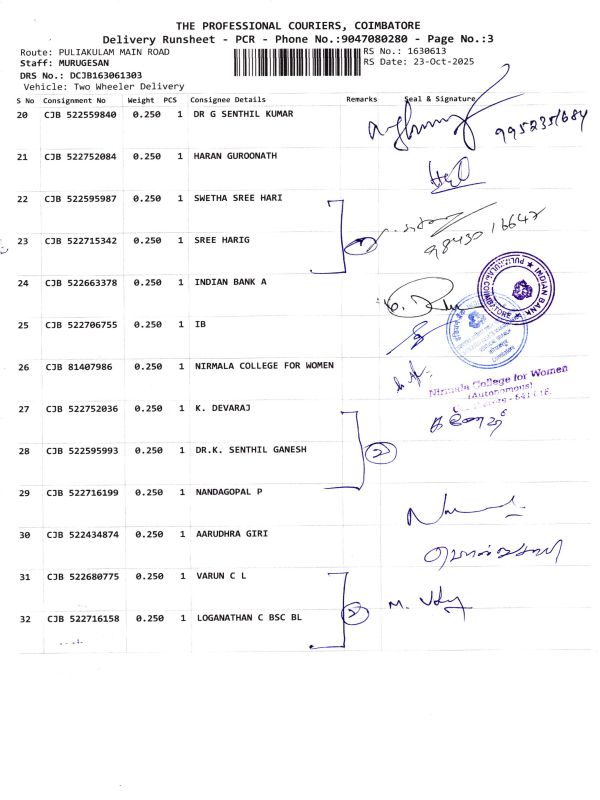 THE PROFESSIONAL COURIERS, COIMBATORE
Delivery Runsheet - PCR - Phone No.:9047080280 - Page No.:3
Route: PULIAKULAM MAIN ROAD RS No.: 1630613
Staff: MURUGESAN RS Date: 23-Oct-2025
DRS No.: DCJB163061303
Vehicle: Two Wheeler Delivery
S No Consignment No Weight PCS Consignee Details Remarks Seal & Signature
20 CJB 522559840 0.250 1 DR G SENTHIL KUMAR
21 CJB 522752084 0.250 1 HARAN GUROONATH
22 CJB 522595987 0.250 1 SWETHA SREE HARI
23 CJB 522715342 0.250 1 SREE HARIG
98430 16647
24 CJB 522663378 0.250 1 INDIAN BANK A
INDIAN BANK
COIMBATORE
25 CJB 522706755 0.250 1 IB
26 CJB 81407986 0.250 1 NIRMALA COLLEGE FOR WOMEN
Nirmala College for Women
(Autonomous)
27 CJB 522752036 0.250 1 K. DEVARAJ
28 CJB 522595993 0.250 1 DR.K. SENTHIL GANESH 2
29 CJB 522716199 0.250 1 NANDAGOPAL P
30 CJB 522434874 0.250 1 AARUDHRA GIRI
31 CJB 522680775 0.250 1 VARUN C L
32 CJB 522716158 0.250 1 LOGANATHAN C BSC BL 2